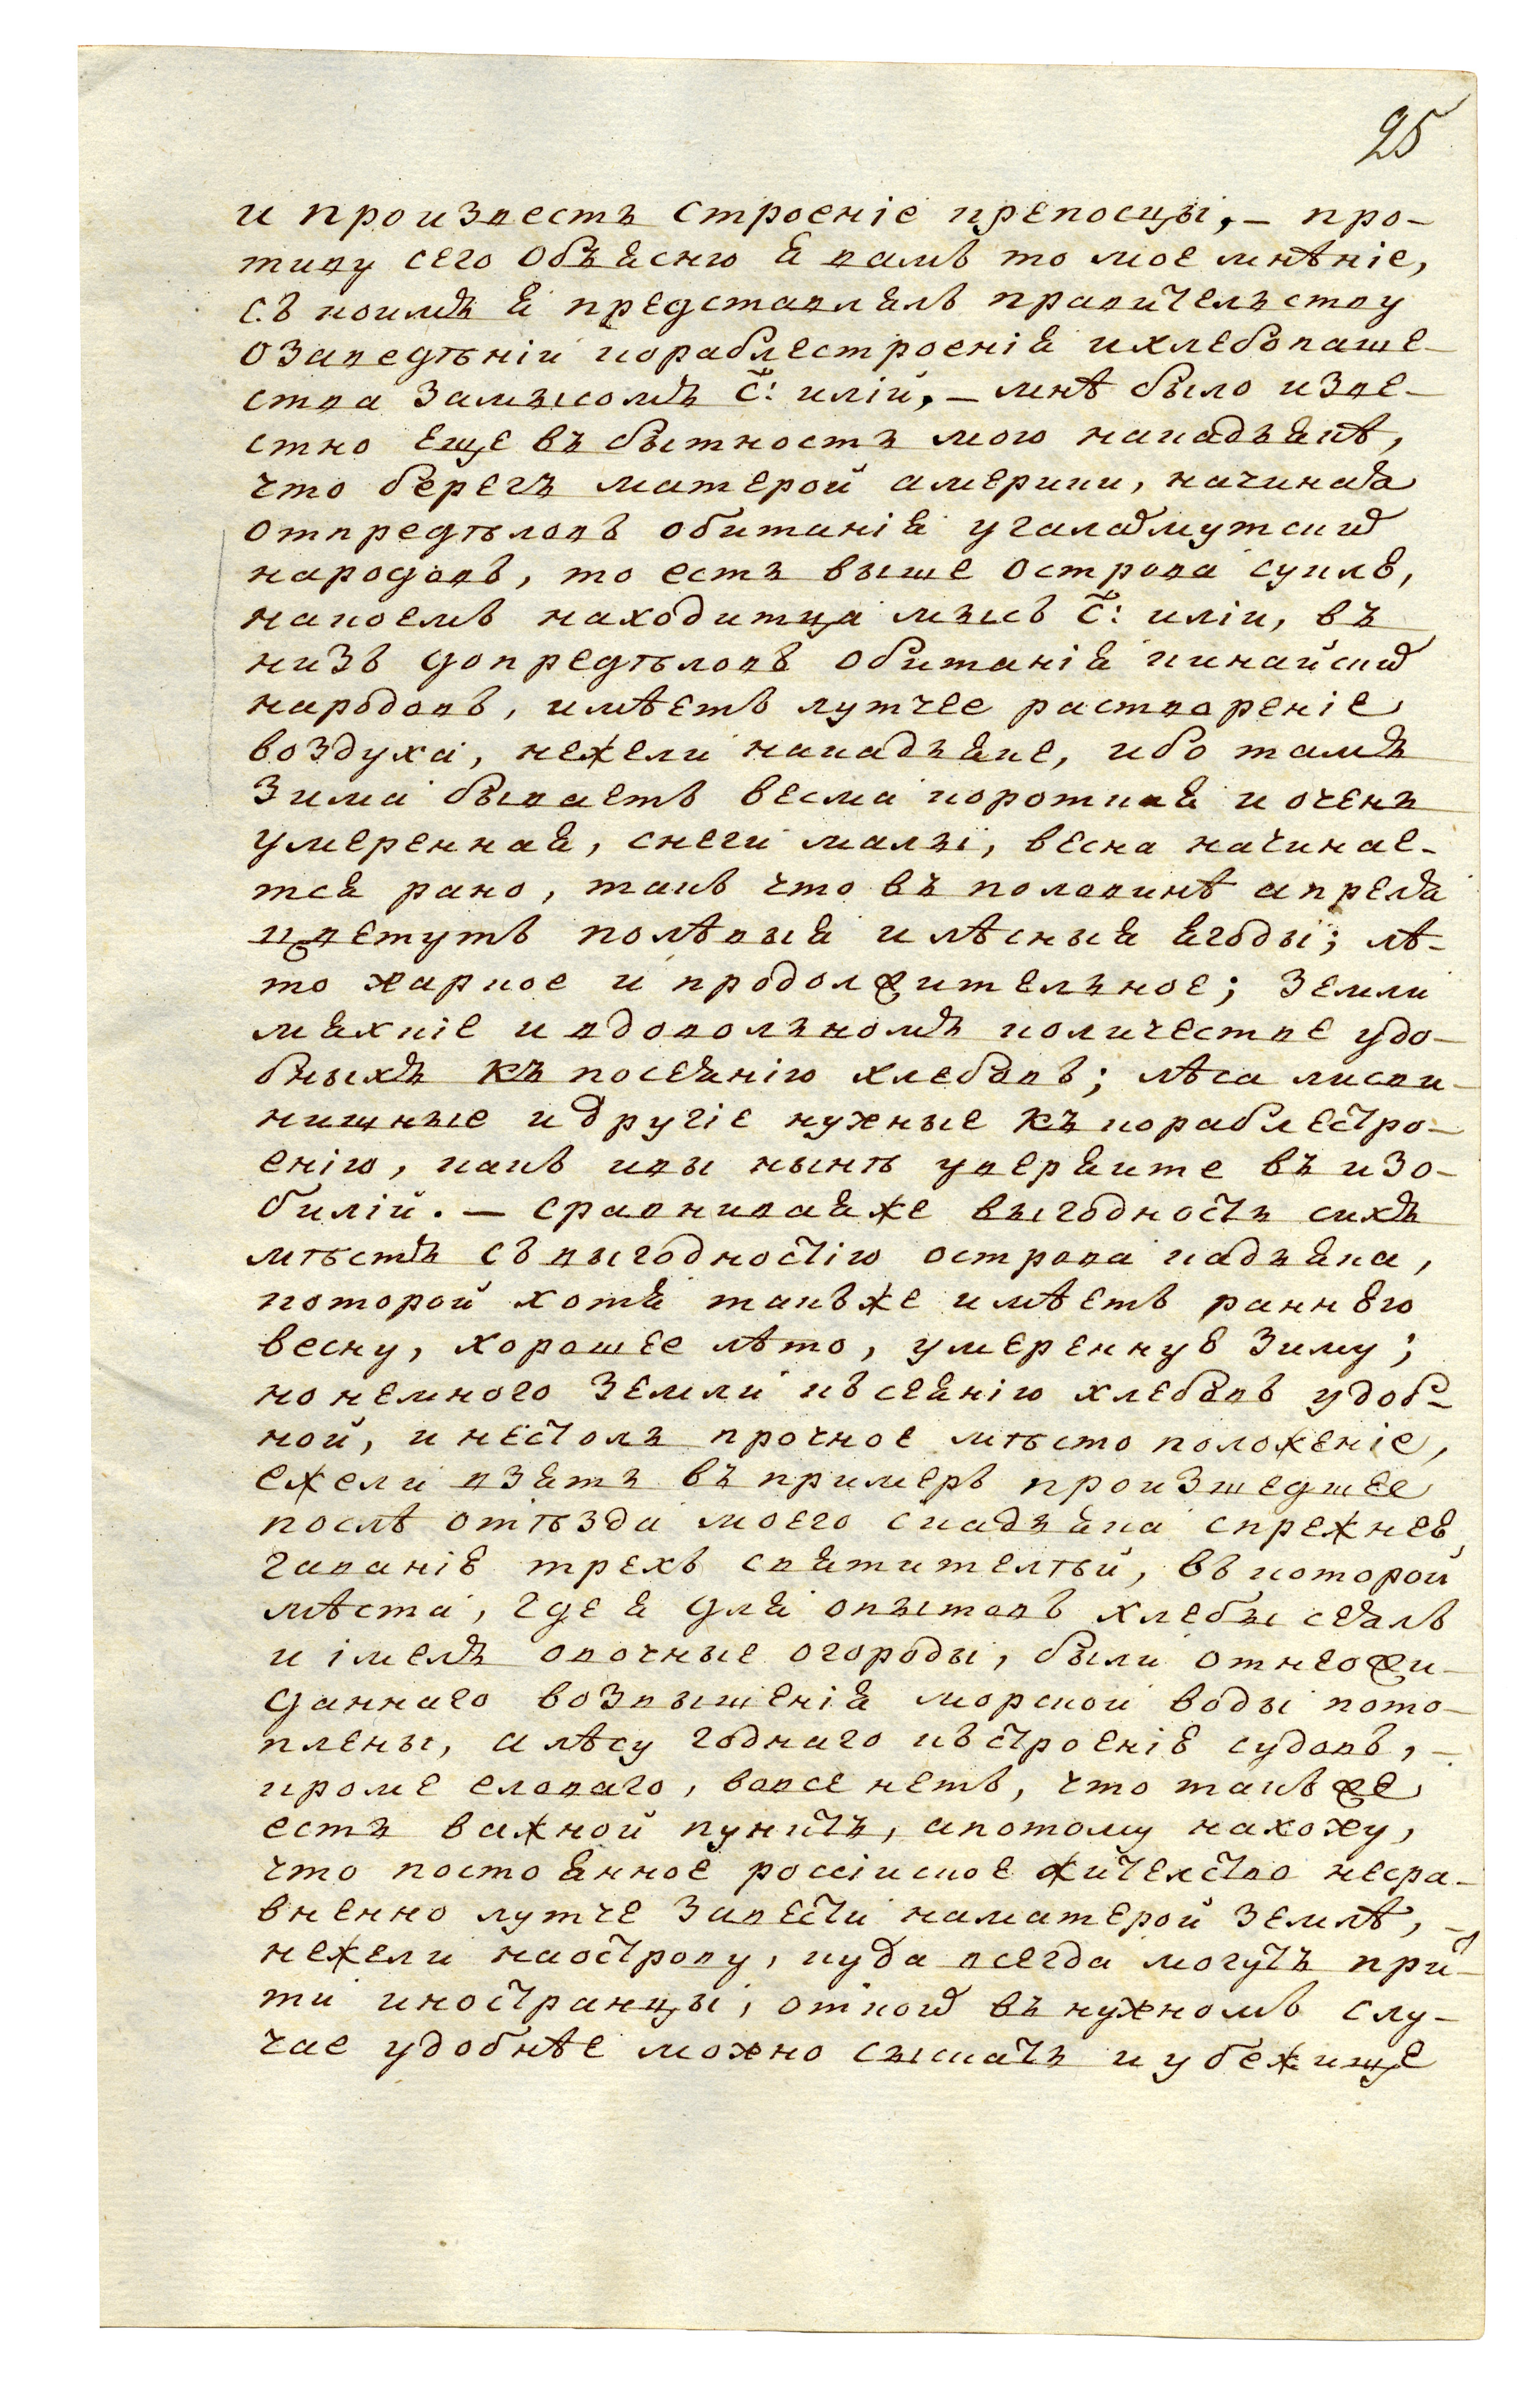 25
и произвесть строеніе крепосцы, – про-
тиву сего объясню я вамъ то мое мнѣніе,
съ коимъ я представлялъ правительству
озаведѣніи кораблестроенія ихлебопаше-
ства замысомъ С: иліи, – мнѣ было изве-
стно еще въ бытность мою накадьякѣ,
что берегъ матерой америки, начиная
отпредѣловъ обитанія угалахмутских
народовъ, то есть выше острова сукля,
накоемъ находитца мысъ С: иліи, въ
низъ допредѣловъ обитанія кинайских
народовъ, имѣетъ лутчее раствореніе
воздуха, нежели накадьяке, ибо тамъ
зима бываетъ весма короткая и очень
умеренная, снеги малы, весна начинае-
тся рано, такъ что въ половинѣ апреля
цветутъ полѣвыя и лѣсныя ягоды; лѣ-
то жаркое и продолжительное; земли
мяхкіе и вдовольномъ количестве удо-
бныхъ къ посеянію хлебовъ; лѣса листви-
нишные и другіе нужные къ кораблестро-
енію, какъ ивы нынѣ уверяите въ изо-
биліи. – сравниваяже выгодность сихъ
мѣстъ съ выгодностію острова кадьяка,
которой хотя такъже имѣетъ раннюю
весну, хорошее лѣто, умеренную зиму;
но немного земли къ сеянію хлебовъ удоб-
ной, и нестоль прочное мѣсто положеніе,
ежели взять въ примеръ произшедшее
послѣ отъѣзда моего скадьяка спрежнее
гавание трехъ святителѣй, въ которой
мѣста, где я для опытовъ хлебы сеялъ
и імелъ овочные огороды, были отнеожи-
даннаго возвышенія морской воды пото-
плены, а лѣсу годнаго къ строение судовъ, –
кроме еловаго, вовсе нетъ, что такъ же
есть важной пунктъ, апотому нахожу,
что постоянное россіиское жительство несра-
вненно лутче завести наматерой землѣ, –
нежели наострову, куда всегда могутъ при-
ти иностранцы, откои въ нужномъ слу-
чае удобнѣе можно сыскать и убежище